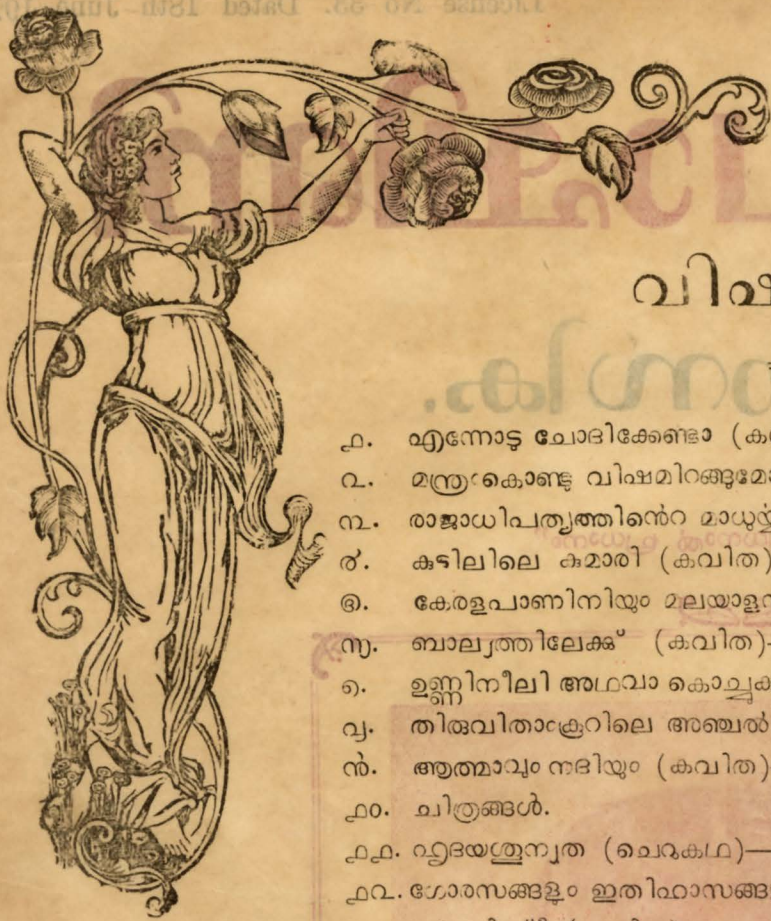 വിഷ
൧. എന്നോടു ചോദിക്കേണ്ടാ (ക
൨. മന്ത്രംകൊണ്ടു വിഷമിറങ്ങുമോ
൩. രാജാധിപത്യത്തിൻെറ മാധുര്യ
൪. കുടിലിലെ കുമാരി (കവിത)
൫. കേരളപാണിനിയും മലയാള
൬. ബാല്യത്തിലേക്കു് (കവിത)—
൭. ഉണ്ണിനീലി അഥവാ കൊച്ചുക
൮. തിരുവിതാംകൂറിലെ അഞ്ചൽ
൯. ആത്മാവും നദിയും (കവിത)
൧൦. ചിത്രങ്ങൾ.
൧൧. ഹൃദയശൂന്യത (ചെറുകഥ)—
൧൨. ഗോരസങ്ങളും ഇതിഹാസങ്ങ